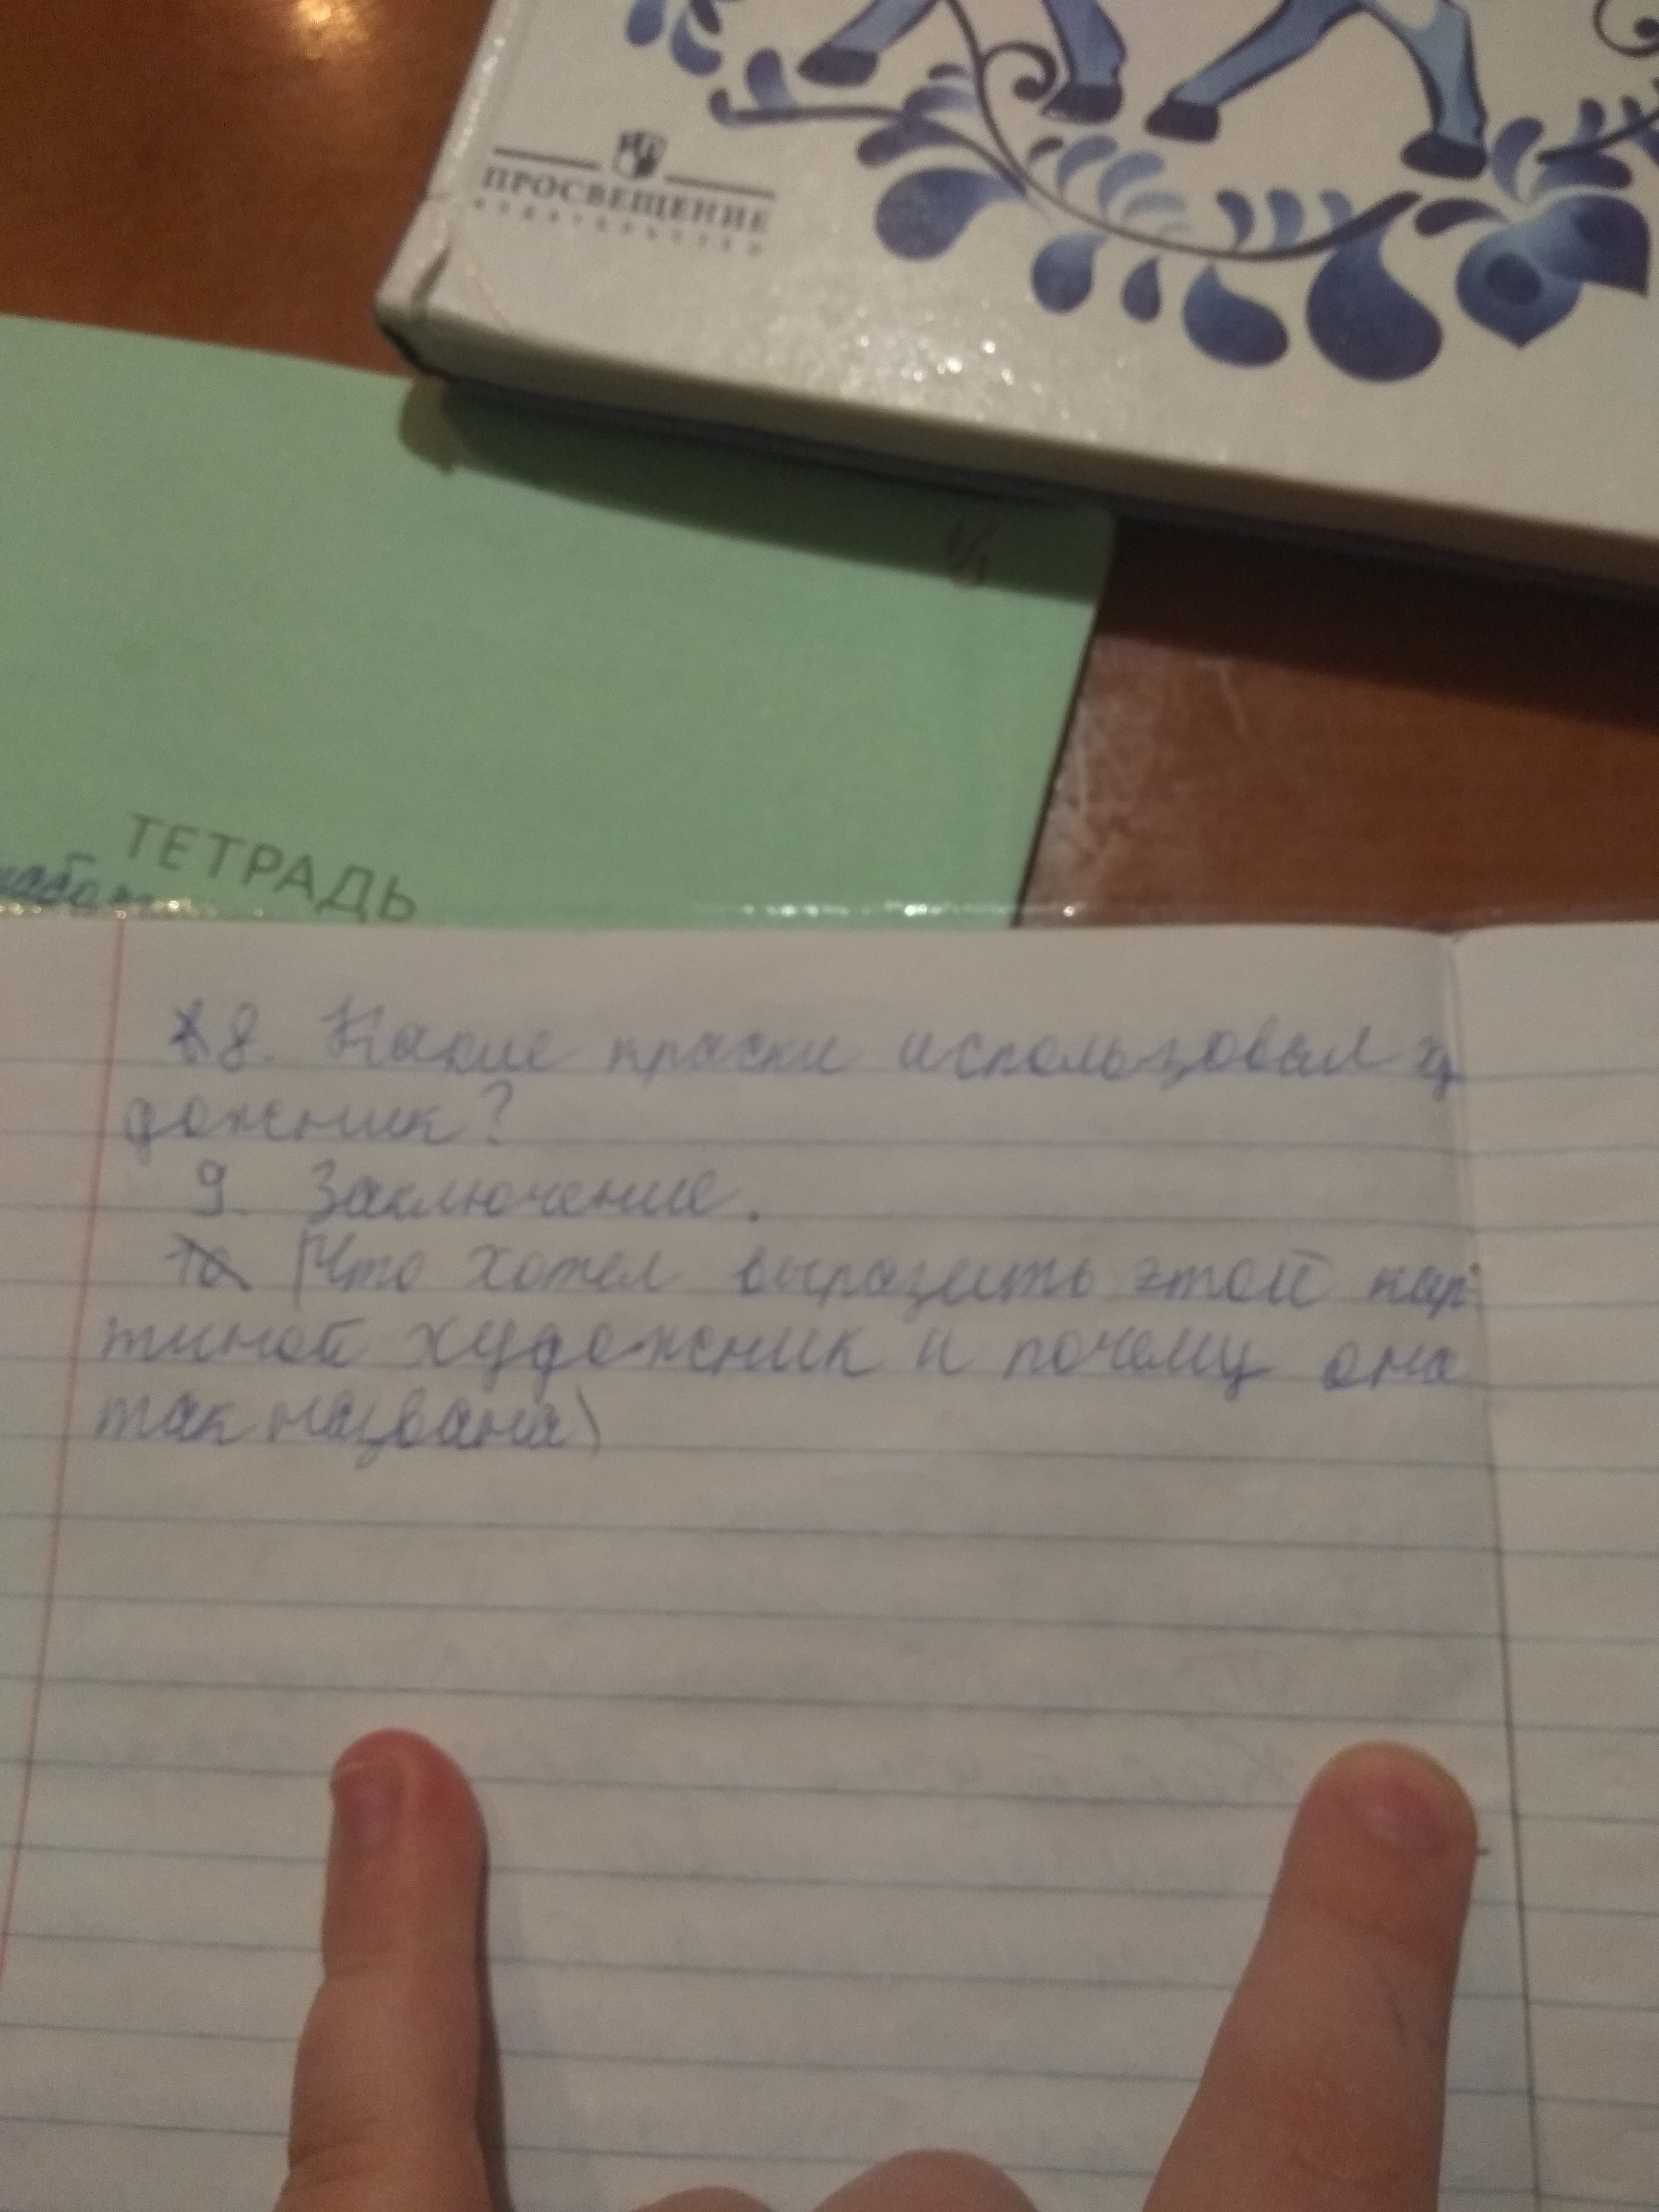 ПРОСВЕЩЕНИЕ
ИЗДАТЕЛЬСТВО
ТЕТРАДЬ
8. Какие краски использовал ху
дожник?
9. Заключение.
(Что хотел выразить этой кар
тиной художник и почему она
так названа)